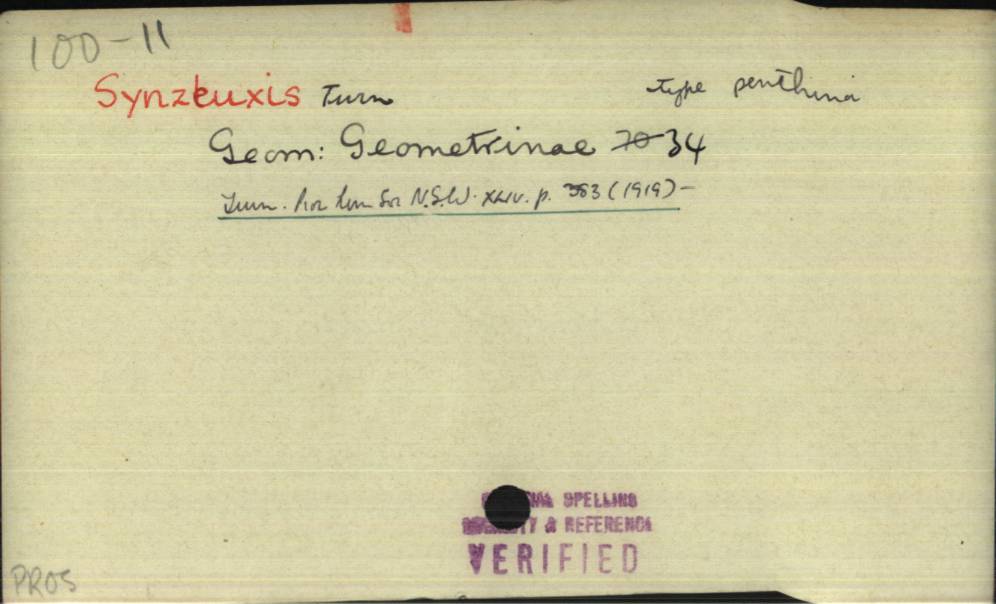 100-11
Synzeuxis Turn type penthina
Geom: Geometrinae 70 34
Turn. Proc Linn Soc N.S.W. XLIV. p. 383 (1919) -
SPELLING
& REFERENCE
VERIFIED
PROS